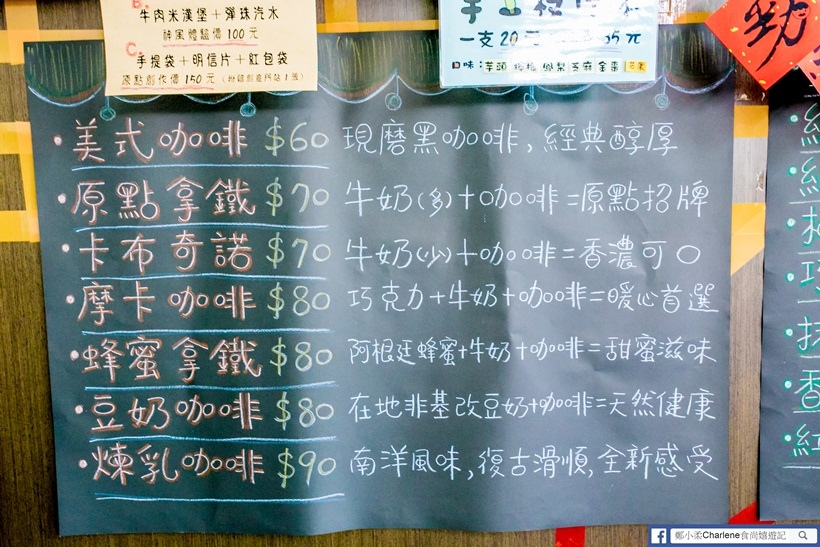 B.
牛肉米漢堡+彈珠汽水
體驗價 100 元
C.
手提袋+明信片+紅包袋
原點創作價 150 元
一支 20 元
35 元
口味:芋頭
芝麻
• 美式咖啡 $60 現磨黑咖啡,經典醇厚
• 原點拿鐵 $70 牛奶(多)+咖啡=原點招牌
• 卡布奇諾 $70 牛奶(少)+咖啡=香濃可口
• 摩卡咖啡 $80 巧克力+牛奶+咖啡=暖心首選
• 蜂蜜拿鐵 $80 阿根廷蜂蜜+牛奶+咖啡=甜蜜滋味
• 豆奶咖啡 $80 在地非基改豆奶+咖啡=天然健康
• 煉乳咖啡 $90 南洋風味,復古滑順,全新感受
香
紅
鄭小柔Charlene食尚嬉遊記